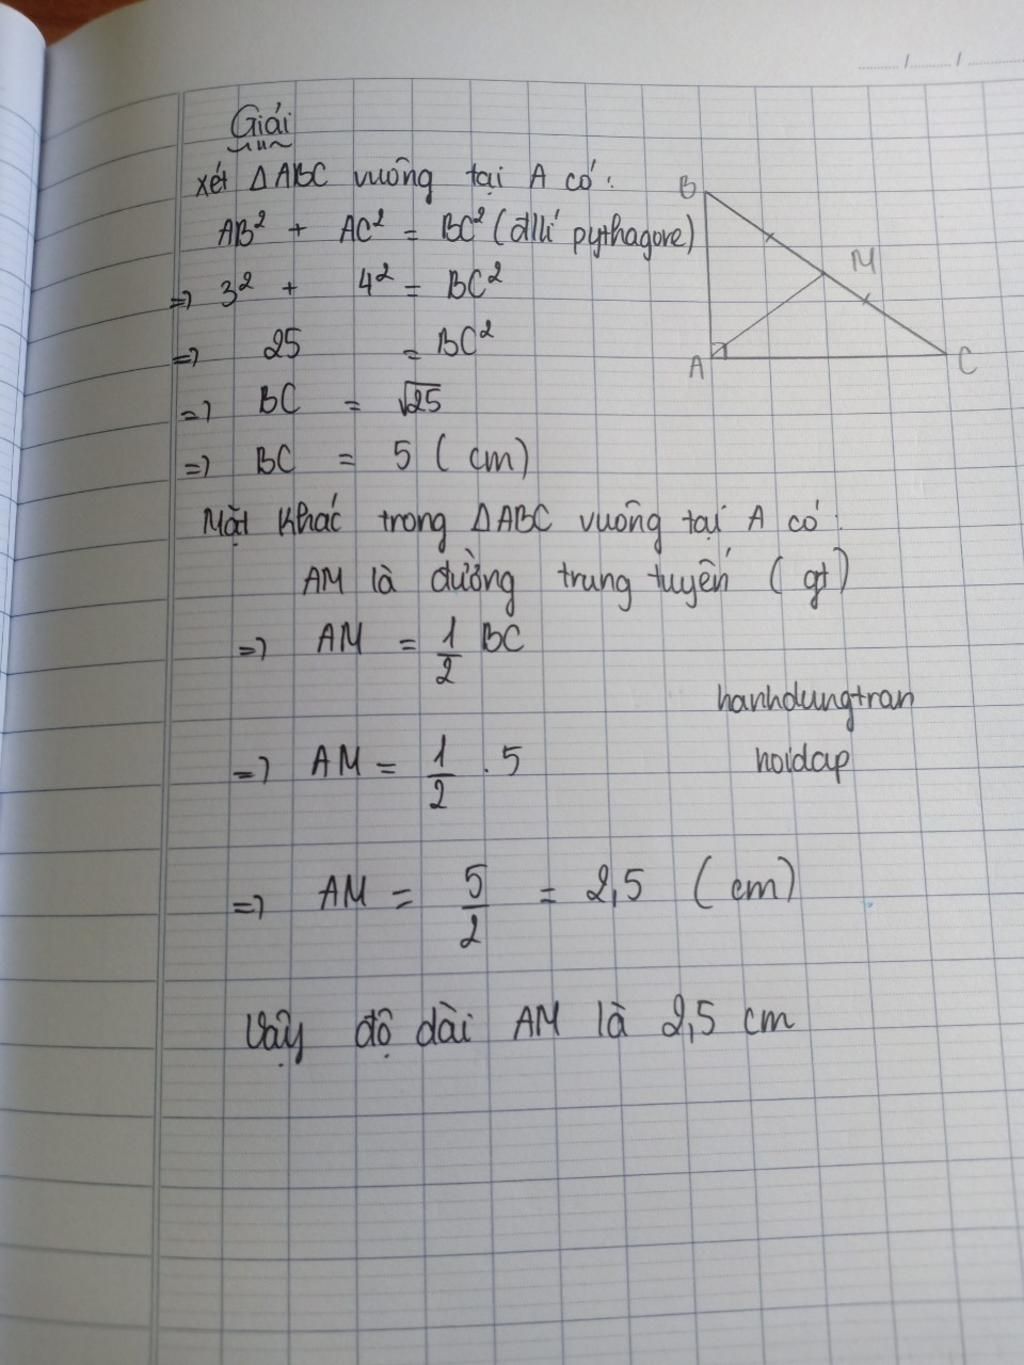 Giải
xét ΔABC vuông tại A có:
AB² + AC² = BC² (đlí pythagore)
=> 3² + 4² = BC²
=> 25 = BC²
=> BC = √25
=> BC = 5 (cm)
B
M
A
C
Mặt Khác trong ΔABC vuông tại A có:
AM là đường trung tuyến (gt)
=> AM = 1/2 BC
hanhdungtran
hoidap
=> AM = 1/2 . 5
=> AM = 5/2 = 2,5 (cm)
Vậy độ dài AM là 2,5 cm